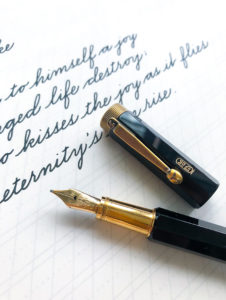 to himself a joy
ged life destroy.
o kisses the joy as it flies
eternity's rise.